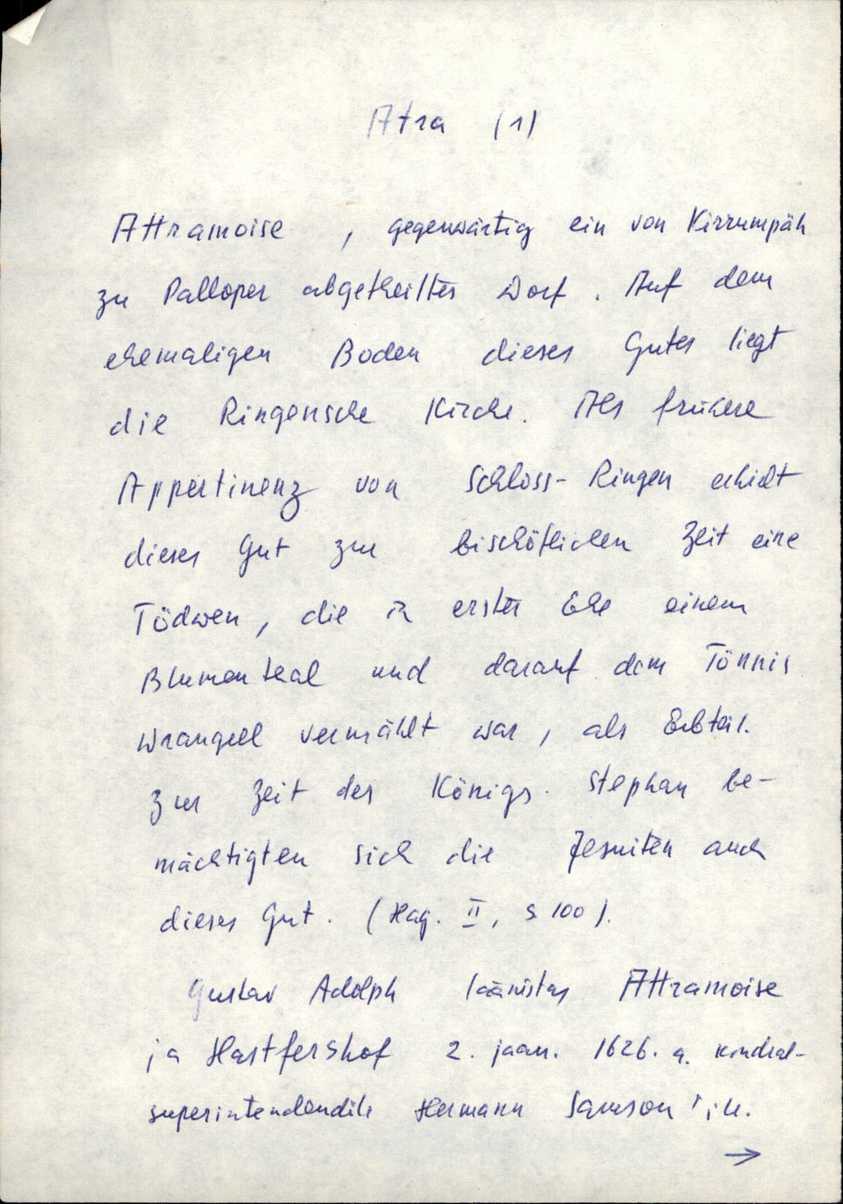 Atra (1)
Attramoise , gegenwärtig ein von Kirrumpäh
zu Palloper abgetheiltes Dorf. Auf dem
ehemaligen Boden dieses Gutes liegt
die Ringensche Kirche. Als frühere
Appertinenz von Schloss-Ringen erhielt
dieses Gut zur bischöflichen Zeit eine
Tödwen, die in erster Ehe einem
Blumenthal und darauf dem Tönnis
Wrangell vermählt war, als Erbteil.
Zur Zeit des Königs Stephan be-
mächtigten sich die Jesuiten auch
dieses Gut. (Hag. II, S 100).
Gustav Adolph läänistas Attramoise
ja Hastfershof 2. jaan. 1626. a. kindral-
superintendendile Hermann Samson'ile.
→